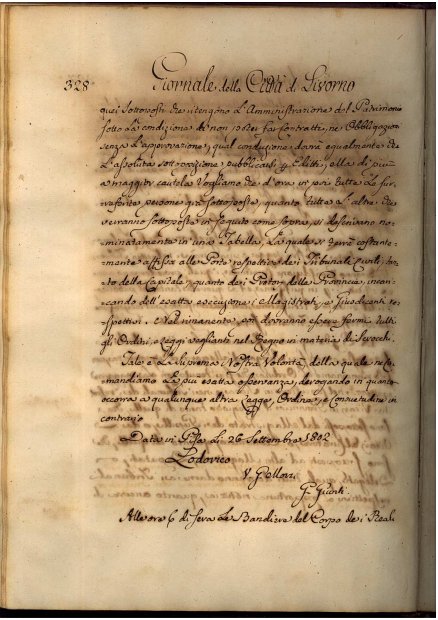 328 Giornale della Città di Livorno
quei Sottoposti che ritengono L'Amministrazione del Patrimonio
sotto La condizione di non poter far Contratti, ne Obbligazioni
senza L'approvazione, qual condizione dovrà equalmente che
L'assoluta sottoposizione pubblicarsi per Editti, ed a di più
a maggior cautela Vogliamo che d'ora in poi tutte Le sur-
riferite persone già sottoposte, quanto tutte L'altre che
verranno sottoposte in seguito come sopra, si descrivano no-
minatamente in una Tabella, La quale si terrà costante-
mente affissa alle Porte respettive dei Tribunali Civili, tan-
to della Capitale, quanto dei Pretori della Provincia, incari-
cando dell'esatta esecuzione i Magistrati, e Giusdicenti re-
spettivi. Nel rimanente poi dovranno essere fermi tutti
gli Ordini, e Leggi veglianti nel Regno in materia di
Tale è La Suprema Nostra Volontà, della quale ne Co-
mandiamo La più esatta osservanza, derogando in quanto
occorra a qualunque altra Legge, Ordine, e Consuetudine in
contrario
Data in Pisa Li 26 Settembre 1802
Lodovico
V.
G. Giunti
Alle ore 6 di sera Le Bandiere del Corpo de' i Reali